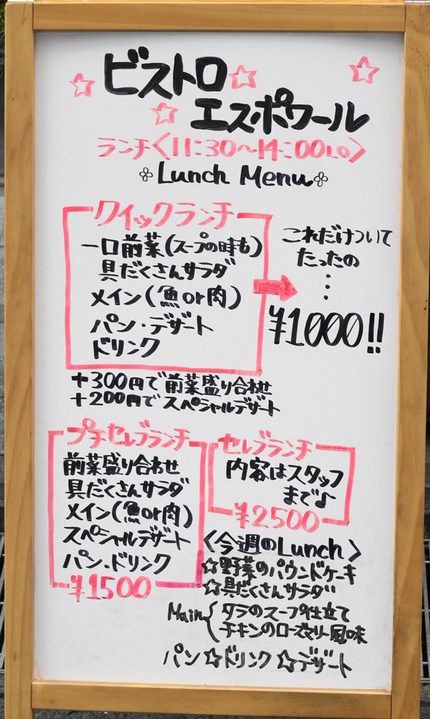 ビストロ
エスポワール
ランチ〈11:30〜14:00LO〉
Lunch Menu
クイックランチ
一口前菜(スープの時も)
具だくさんサラダ
メイン(魚or肉)
パン・デザート
ドリンク
これだけついて
たったの
⋮
¥1000!!
+300円で前菜盛り合わせ
+200円でスペシャルデザート
プチセレブランチ
前菜盛り合わせ
具だくさんサラダ
メイン(魚or肉)
スペシャルデザート
パン・ドリンク
¥1500
セレブランチ
内容はスタッフ
まで♪
¥2500
〈今週のLunch〉
☆野菜のパウンドケーキ
☆具だくさんサラダ
Main タラのスープ仕立て
チキンのローズマリー風味
パン☆ドリンク☆デザート